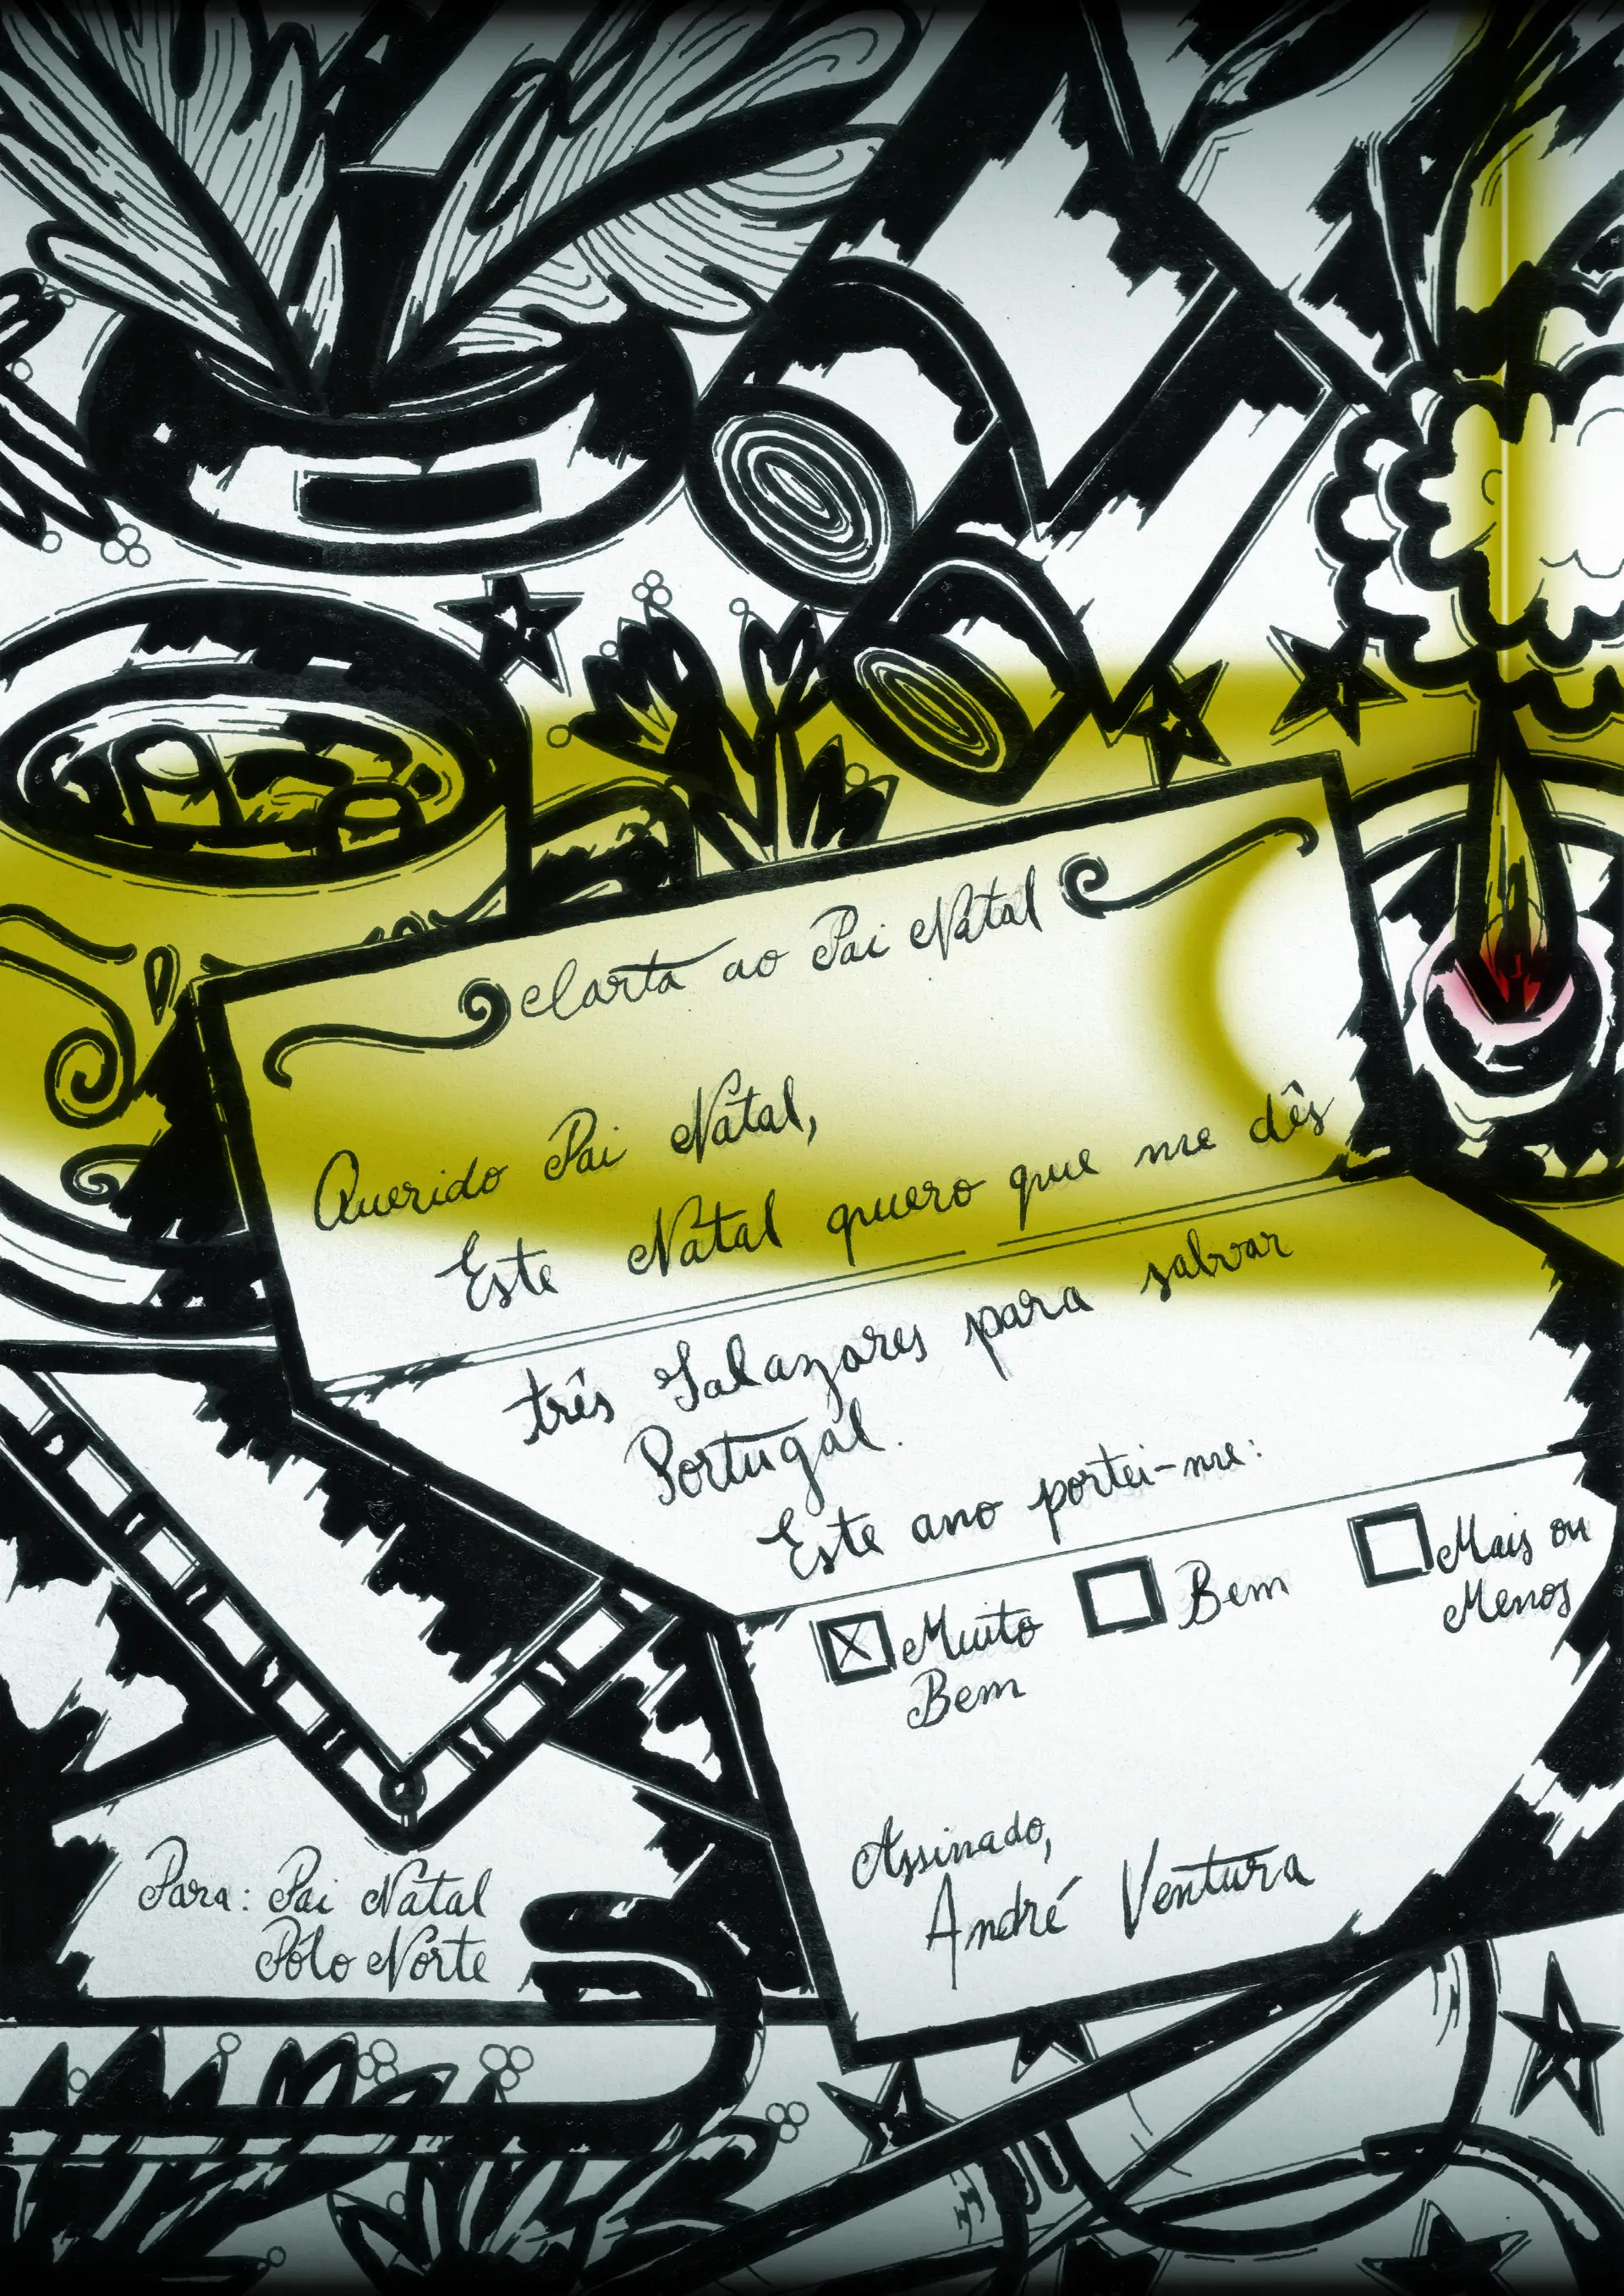 Carta ao Pai Natal
Querido Pai Natal,
Este Natal quero que me dês
três Salazares para salvar
Portugal.
Este ano portei-me:
Muito
Bem
Bem
Mais ou
Menos
Assinado,
André Ventura
Para: Pai Natal
Pólo Norte